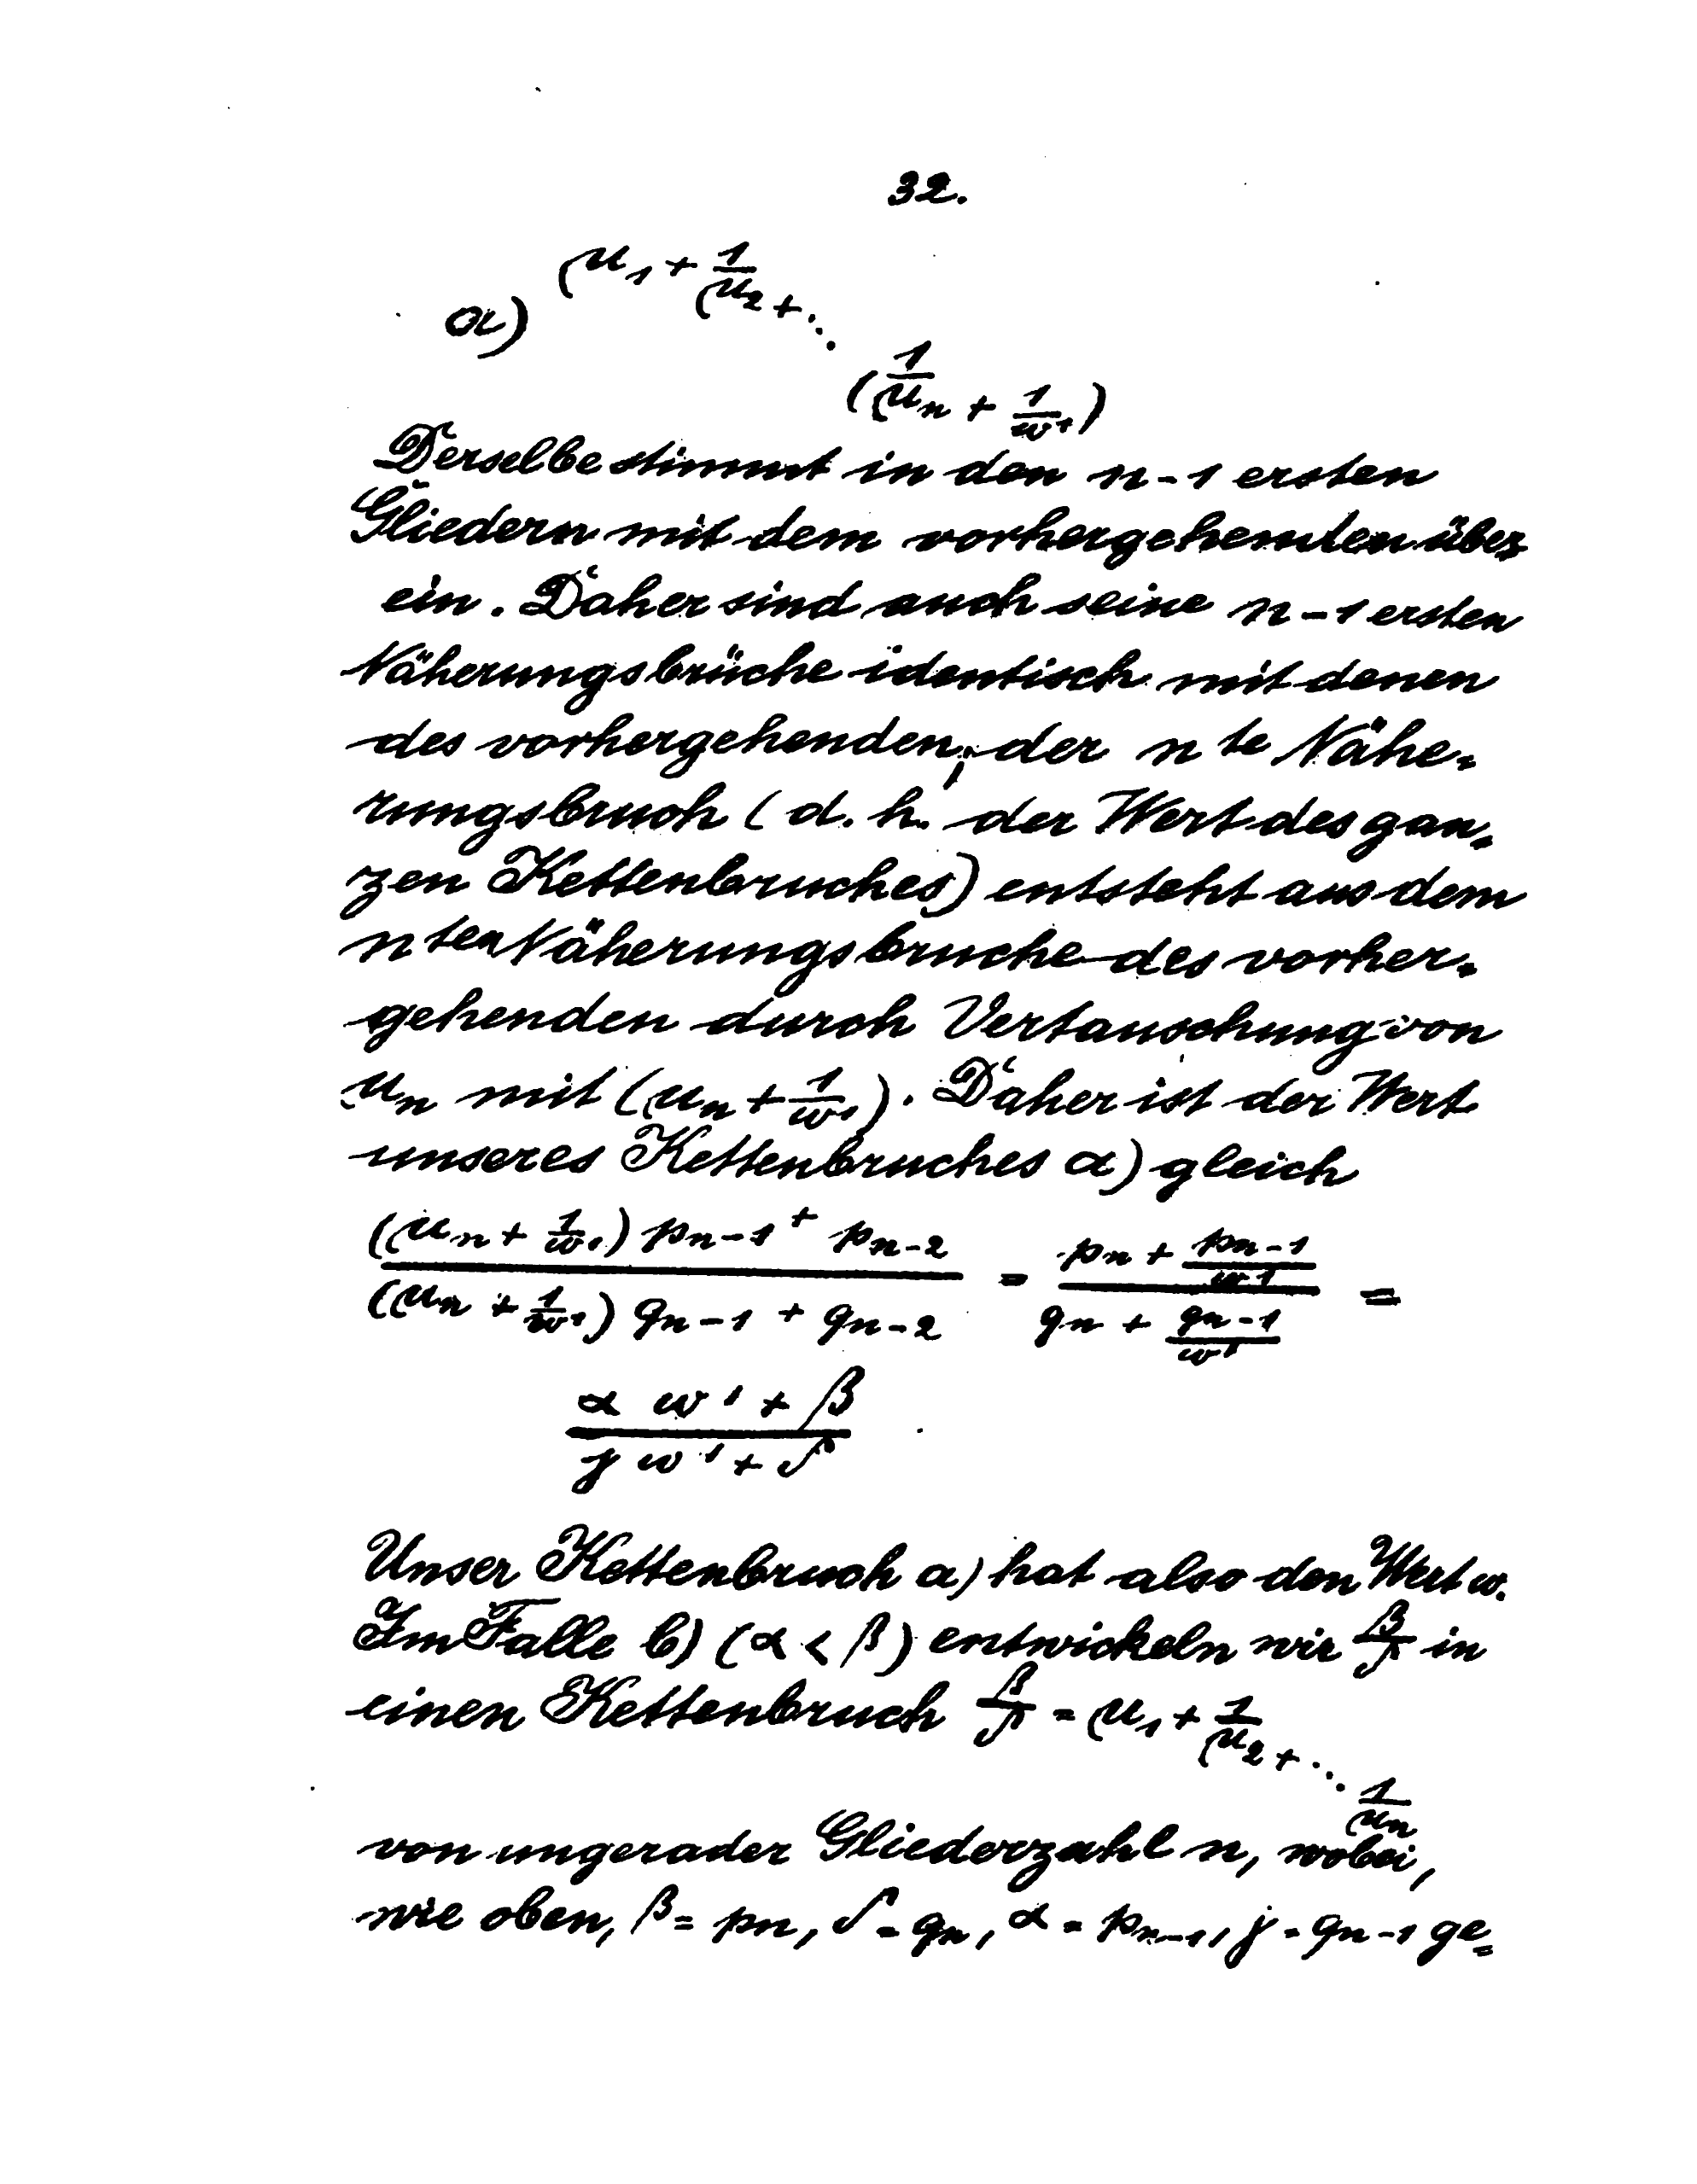 32.
α) (μ₁ + 1/(μ₂ + ⋱
(1/(μₙ + 1/w')
Derselbe stimmt in den n-1 ersten
Gliedern mit dem vorhergehenden über
ein. Daher sind auch seine n-1 ersten
Näherungsbrüche identisch mit denen
des vorhergehenden, der n te Nähe=
rungsbruch (d. h. der Wert des gan=
zen Kettenbruches) entsteht aus dem
n ten Näherungsbruche des vorher=
gehenden durch Vertauschung von
μₙ mit (μₙ + 1/w'). Daher ist der Wert
unseres Kettenbruches α) gleich
((μₙ + 1/w') pₙ₋₁ + pₙ₋₂)/((μₙ + 1/w') qₙ₋₁ + qₙ₋₂) = (pₙ + pₙ₋₁/w')/(qₙ + qₙ₋₁/w') =
(α w' + β)/(γ w' + δ)
Unser Kettenbruch α) hat also den Wert w.
Im Falle b) (α < β) entwickeln wir β/δ in
einen Kettenbruch β/δ = μ₁ + 1/(μ₂ + ⋱ 1/μₙ
von ungerader Gliederzahl n, wobei,
wie oben, β = pₙ, δ = qₙ, α = pₙ₋₁, γ = qₙ₋₁ ge=